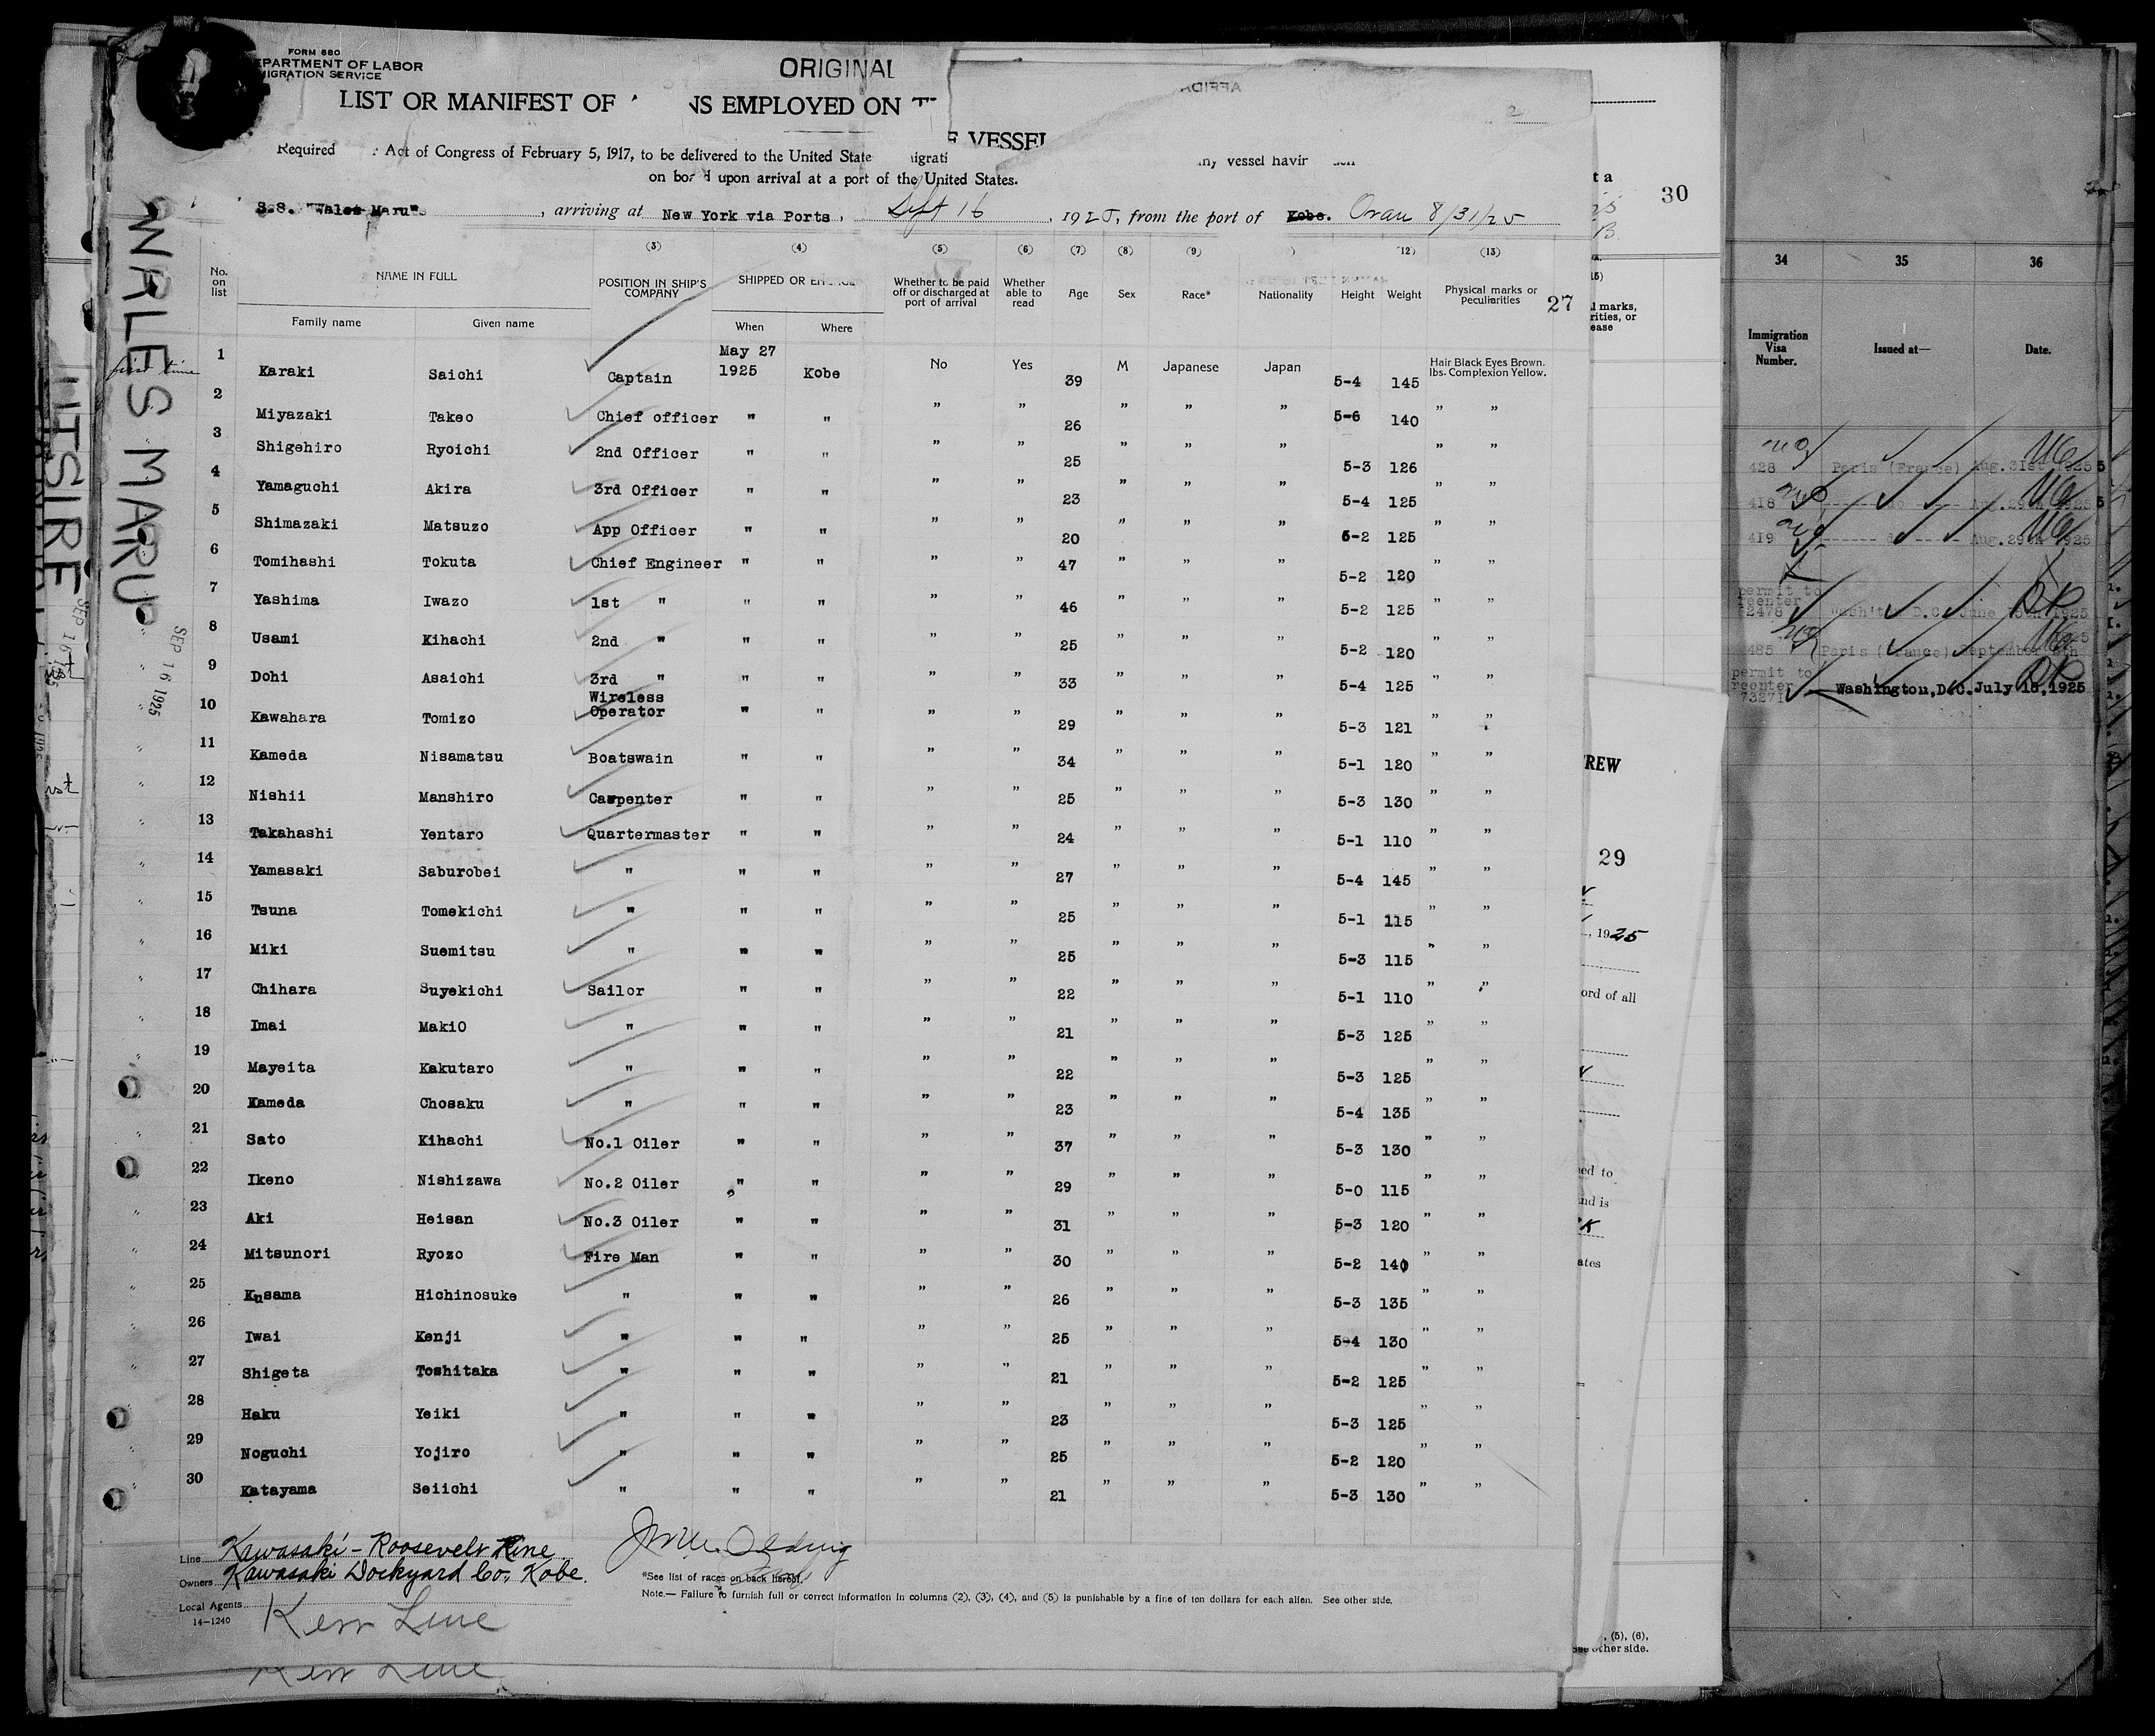 FORM 680
EPARTMENT OF LABOR
MIGRATION SERVICE
ORIGINAL
LIST OR MANIFEST OF NS EMPLOYED ON
E VESSEL
Required Act of Congress of February 5, 1917, to be delivered to the United State igrati ny vessel havin
on board upon arrival at a port of the United States.
S.S. "Wales Maru", arriving at New York via Ports, Sept 16, 1925, from the port of Kobe. Oran 8/31/25
WALES MARU
SEP 16 1925
27
No. on list NAME IN FULL (3) POSITION IN SHIP'S COMPANY (4) SHIPPED OR ENGAGED (5) Whether to be paid off or discharged at port of arrival (6) Whether able to read (7) Age (8) Sex (9) Race* Nationality Height (12) Weight (13) Physical marks or Peculiarities
Family name Given name When Where
first time 1 Karaki Saichi Captain May 27 1925 Kobe No Yes 39 M Japanese Japan 5-4 145 Hair Black Eyes Brown. lbs. Complexion Yellow.
2 Miyazaki Takeo Chief officer " " " " 26 " " " 5-6 140 " "
3 Shigehiro Ryoichi 2nd Officer " " " " 25 " " " 5-3 126 " "
4 Yamaguchi Akira 3rd Officer " " " " 23 " " " 5-4 125 " "
5 Shimazaki Matsuzo App Officer " " " " 20 " " " 5-2 125 " "
6 Tomihashi Tokuta Chief Engineer " " " " 47 " " " 5-2 120 " "
7 Yashima Iwazo 1st " " " " " 46 " " " 5-2 125 " "
" 8 Usami Kihachi 2nd " " " " " 25 " " " 5-2 120 " "
" 9 Dohi Asaichi 3rd " " " " " 33 " " " 5-4 125 " "
" 10 Kawahara Tomizo Wireless Operator " " " " 29 " " " 5-3 121 " "
" 11 Kameda Nisamatsu Boatswain " " " " 34 " " " 5-1 120 " "
" 12 Nishii Manshiro Carpenter " " " " 25 " " " 5-3 130 " "
" 13 Takahashi Yentaro Quartermaster " " " " 24 " " " 5-1 110 " "
" 14 Yamasaki Saburobei " " " " " 27 " " " 5-4 145 " "
" 15 Tsuna Tomekichi " " " " " 25 " " " 5-1 115 " "
" 16 Miki Suemitsu " " " " " 25 " " " 5-3 115 " "
" 17 Chihara Suyekichi Sailor " " " " 22 " " " 5-1 110 " "
" 18 Imai MakiO " " " " " 21 " " " 5-3 125 " "
" 19 Mayeita Kakutaro " " " " " 22 " " " 5-3 125 " "
" 20 Kameda Chosaku " " " " " 23 " " " 5-4 135 " "
" 21 Sato Kihachi No.1 Oiler " " " " 37 " " " 5-3 130 " "
" 22 Ikeno Nishizawa No.2 Oiler " " " " 29 " " " 5-0 115 " "
" 23 Aki Heisan No.3 Oiler " " " " 31 " " " 5-3 120 " "
" 24 Mitsunori Ryozo Fire Man " " " " 30 " " " 5-2 140 " "
" 25 Kusama Hichinosuke " " " " " 26 " " " 5-3 135 " "
" 26 Iwai Kenji " " " " " 25 " " " 5-4 130 " "
" 27 Shigeta Toshitaka " " " " " 21 " " " 5-2 125 " "
" 28 Haku Yeiki " " " " " 23 " " " 5-3 125 " "
" 29 Noguchi Yojiro " " " " " 25 " " " 5-2 120 " "
" 30 Katayama Seiichi " " " " " 21 " " " 5-3 130 " "
Line Kawasaki-Roosevelt Line
Owners Kawasaki Dockyard Co. Kobe.
Local Agents Kerr Line
14-1240
Kerr Line
*See list of races on back hereof.
Note.— Failure to furnish full or correct information in columns (2), (3), (4), and (5) is punishable by a fine of ten dollars for each alien. See other side.
30
l marks,
rities, or
ease
REW
29
, 1925
ord of all
ed to
nd is
ates
, (5), (6),
See other side.
34 35 36
Immigration Visa Number. Issued at— Date.
428 Paris (France) Aug. 31st 1925
418 Aug. 29th 1925
419 Aug. 29th 1925
permit to reenter 62478 Wash'ton D.C. June 15th 1925
485 Paris (France) September
permit to reenter 73271 Washington, D.C. July 15, 1925